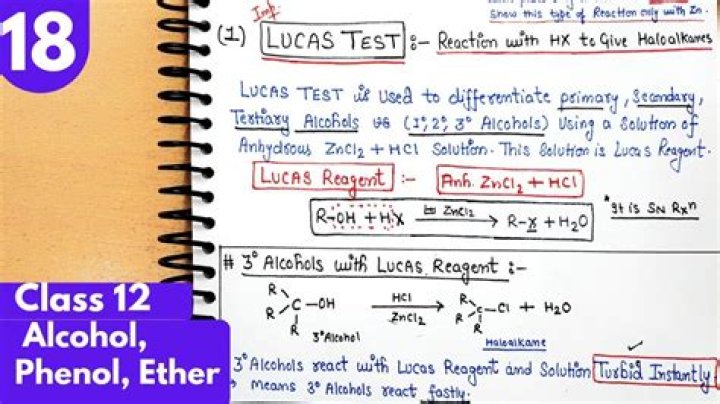 18
Show this type of Reaction only with Zn.
Imp.
(1) LUCAS TEST :- Reaction with HX to Give Haloalkanes
LUCAS TEST is used to differentiate primary, Secondary,
Tertiary Alcohols vs (1°, 2°, 3° Alcohols) Using a Solution of
Anhydrous ZnCl2 + HCl Solution. This Solution is Lucas Reagent.
LUCAS Reagent :- Anh. ZnCl2 + HCl
*It is SN Rxn
R-OH + HX ZnCl2 → R-X + H2O
# 3° Alcohols with LUCAS Reagent :-
R
R C-OH HCl → R C-Cl + H2O
R ZnCl2 R R
3° Alcohol Haloalkane
3° Alcohols react with Lucas Reagent and Solution Turbid Instantly.
→ means 3° Alcohols react fastly.
Class 12
Alcohol,
Phenol, Ether